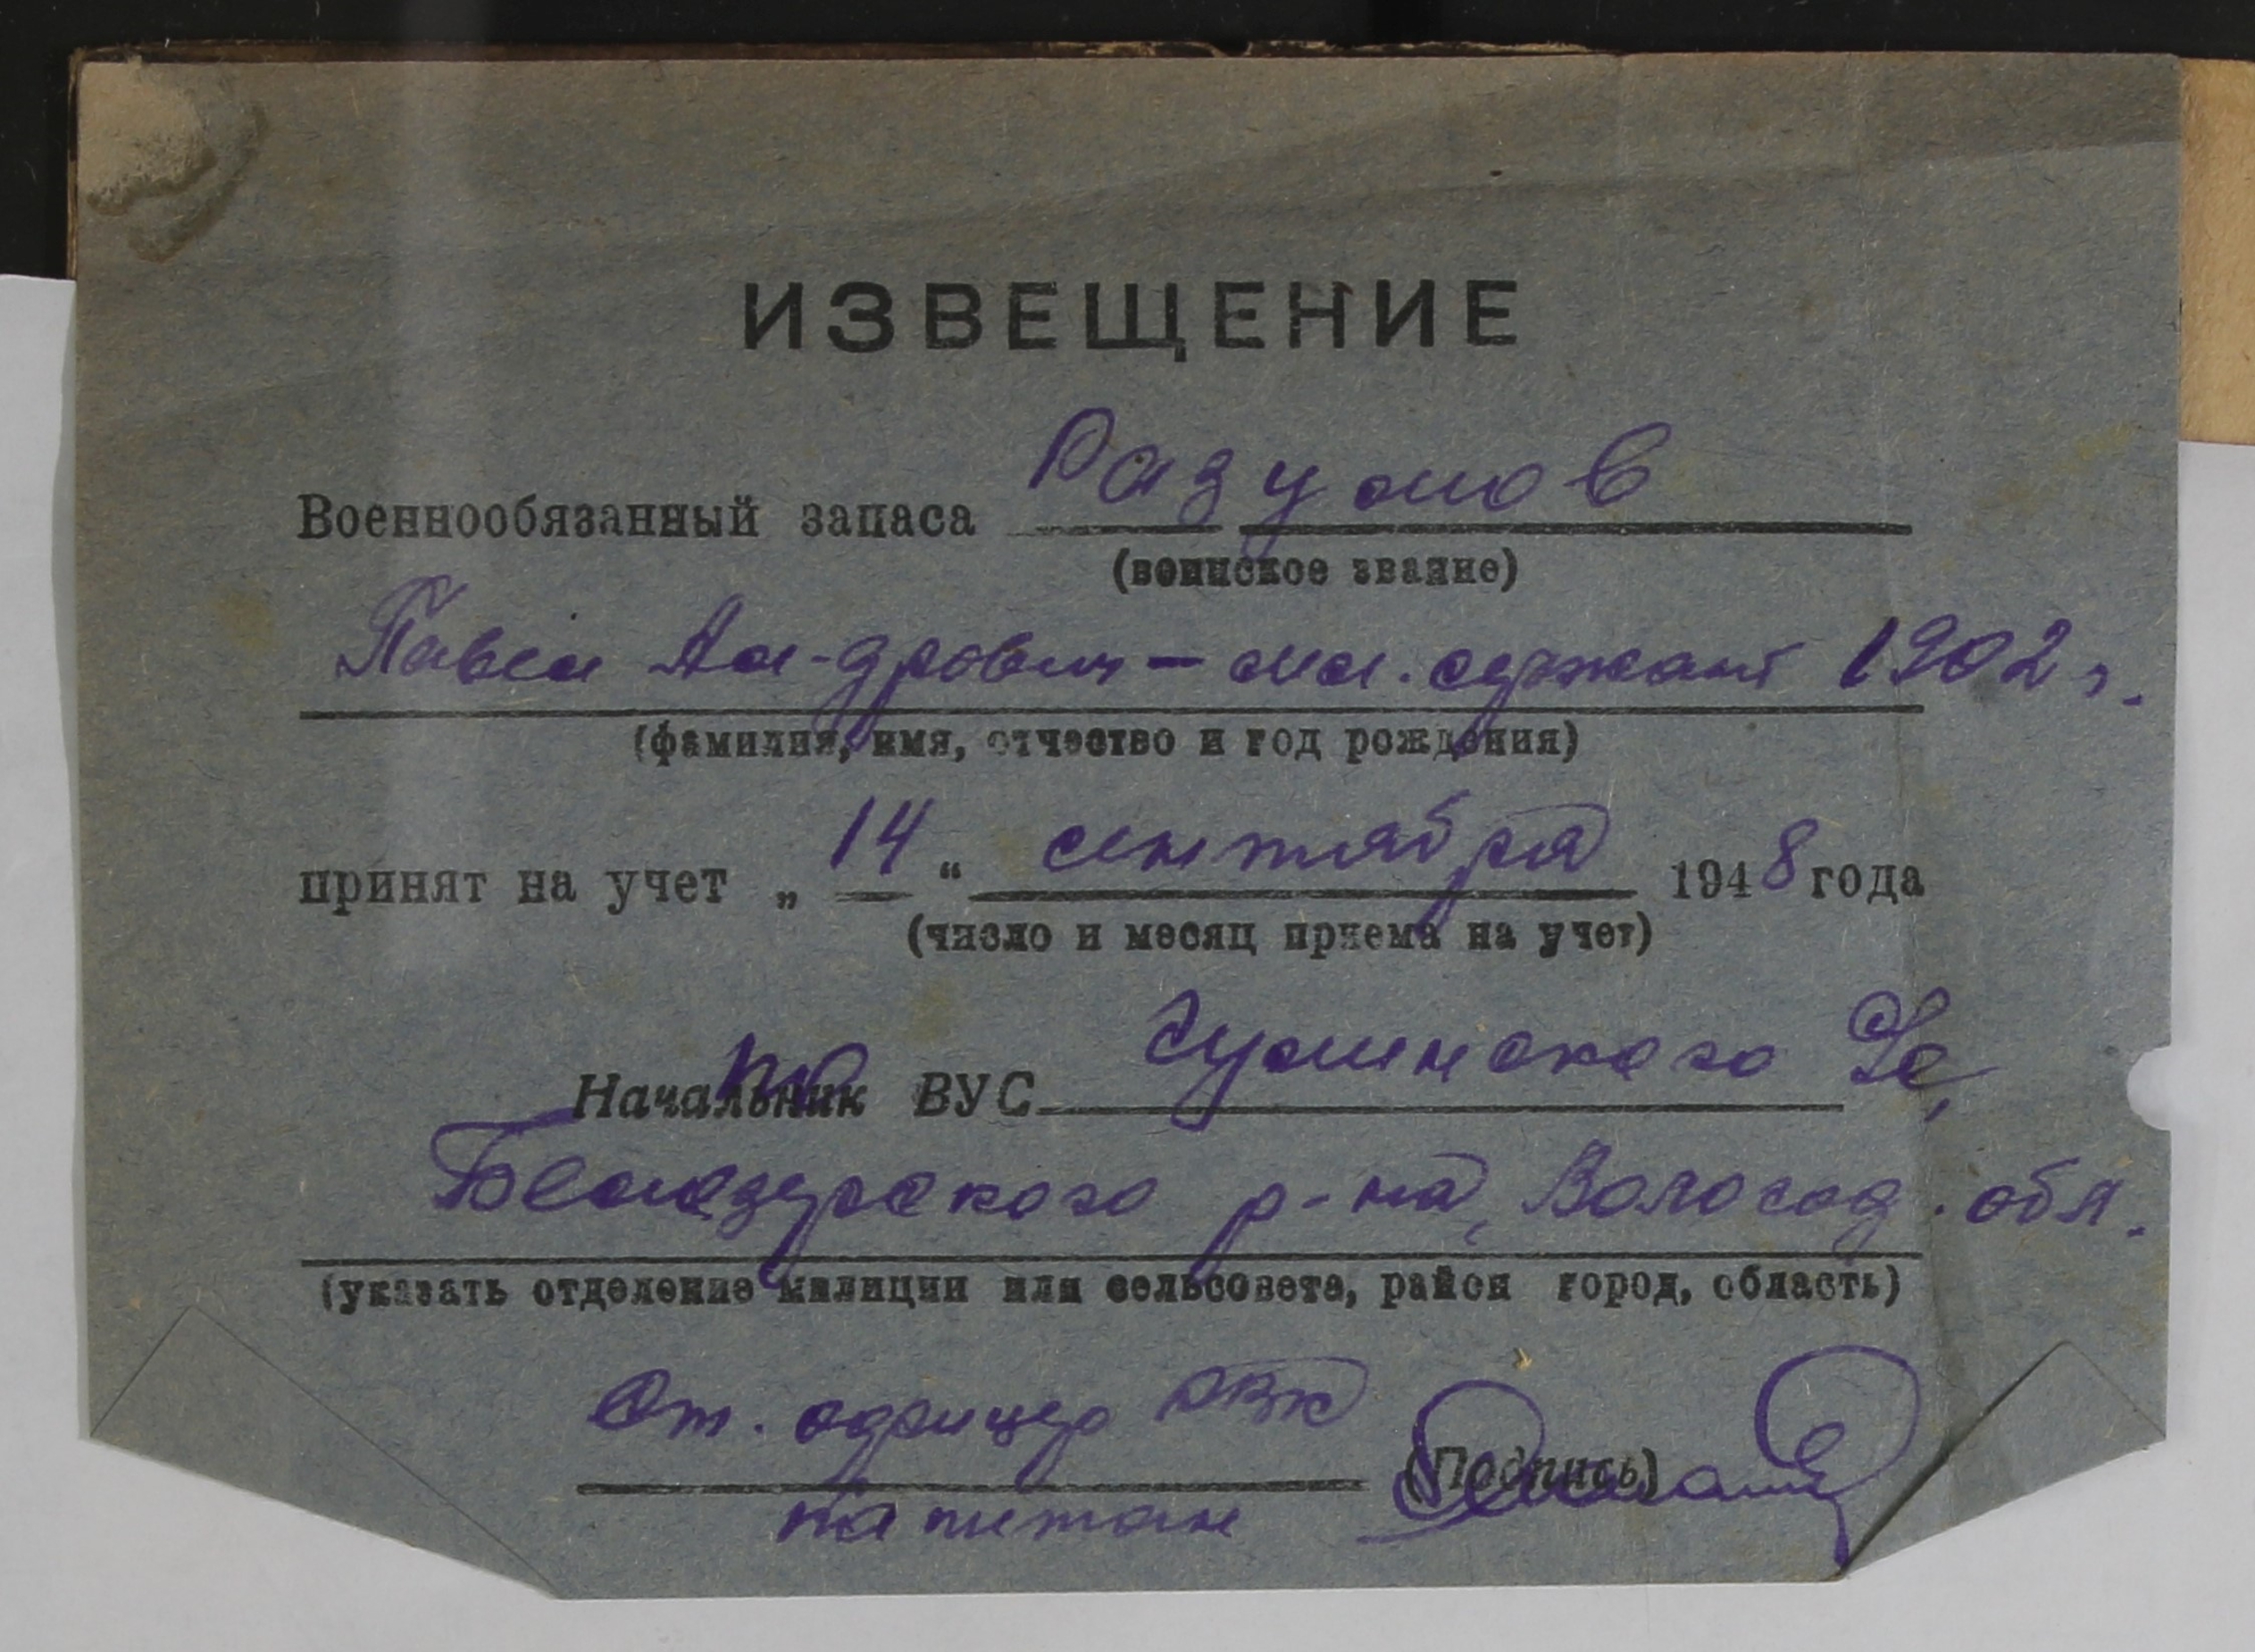 ИЗВЕЩЕНИЕ
Военнообязанный запаса Разумов
(воинское звание)
Павел Ал-дрович – мл. сержант 1902 г.
(фамилия, имя, отчество и год рождения)
принят на учет „14“ сентября 1948 года
(число и месяц приема на учет)
Начальник ВУС по
Белозерского р-на, Вологод. обл.
(указать отделение милиции или сельсовета, район город, область)
Ст. офицер РВК
(Подпись)
капитан